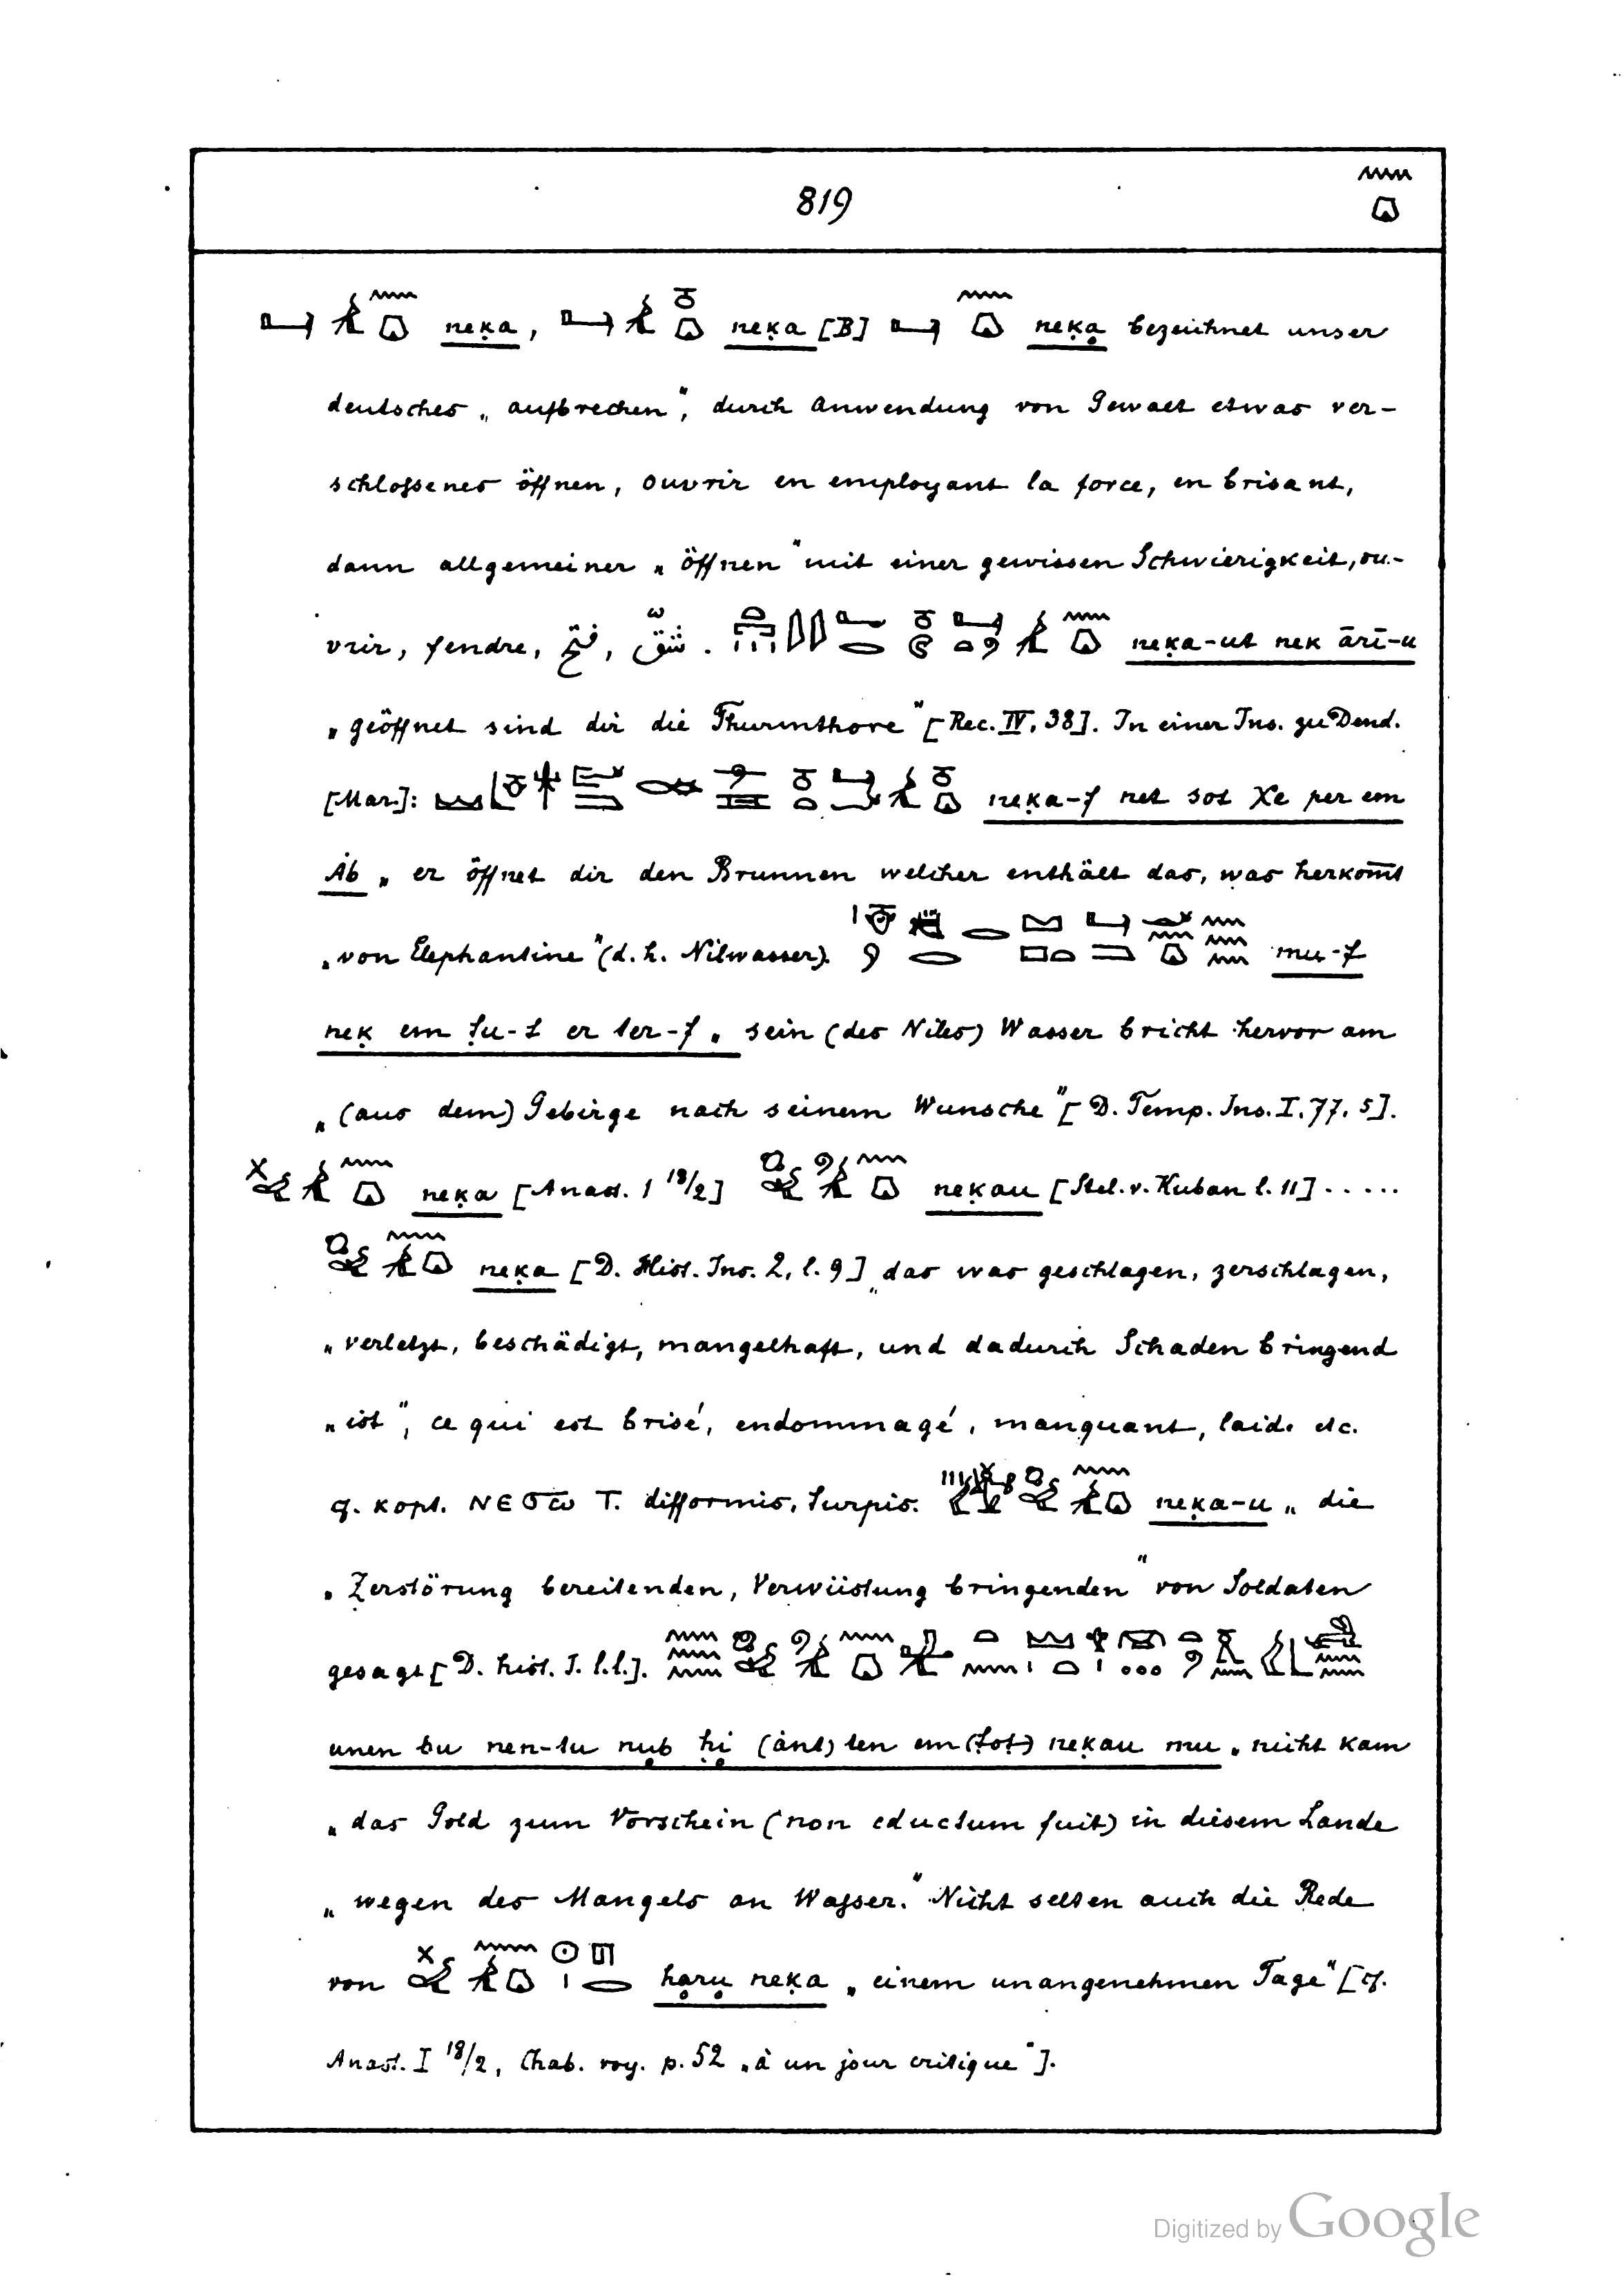 819
neḳa, neḳa [B] neḳa bezeichnet unser
deutsches „aufbrechen“, durch Anwendung von Gewalt etwas ver-
schlossenes öffnen, ouvrir en employant la force, en brisant,
dann allgemeiner „öffnen“ mit einer gewissen Schwierigkeit, ou-
vrir, fendre, فتح, شقّ. neḳa-ut nek ārī-u
„geöffnet sind dir die Thurmthore“ [Rec. IV, 38]. In einer Ins. zu Dend.
[Mar.]: neḳa-f net sot Xe per em
Åb „er öffnet dir den Brunnen welcher enthält das, was herkom̅t
„von Elephantine“ (d. h. Nilwasser). mu-f
neḳ em ṭu-t er ter-f „sein (des Niles) Wasser bricht hervor am
„(aus dem) Gebirge nach seinem Wunsche“ [D. Temp. Ins. I, 77, 5].
neḳa [Anast. 1 18/2] neḳau [Stel. v. Kuban l. 11] .....
neḳa [D. Hist. Ins. 2, l. 9] „das was geschlagen, zerschlagen,
„verletzt, beschädigt, mangelhaft, und dadurch Schaden bringend
„ist“, ce qui est brisé, endommagé, manquant, laid. etc.
cf. kopt. ⲛⲉϭⲱ T. difformis, turpis. neḳa-u „die
„Zerstörung bereitenden, Verwüstung bringenden“ von Soldaten
gesagt [D. hist. I. l.l.].
unen bu nen-tu nub ḥi (ånt) ten em (ṭoṭ) neḳau mu „nicht kam
„das Gold zum Vorschein (non eductum fuit) in diesem Lande
„wegen des Mangels an Wasser.“ Nicht selten auch die Rede
von haru neḳa „einem unangenehmen Tage“ [cf.
Anast. I 18/2, Chab. voy. p. 52 „à un jour critique“].
Digitized by Google